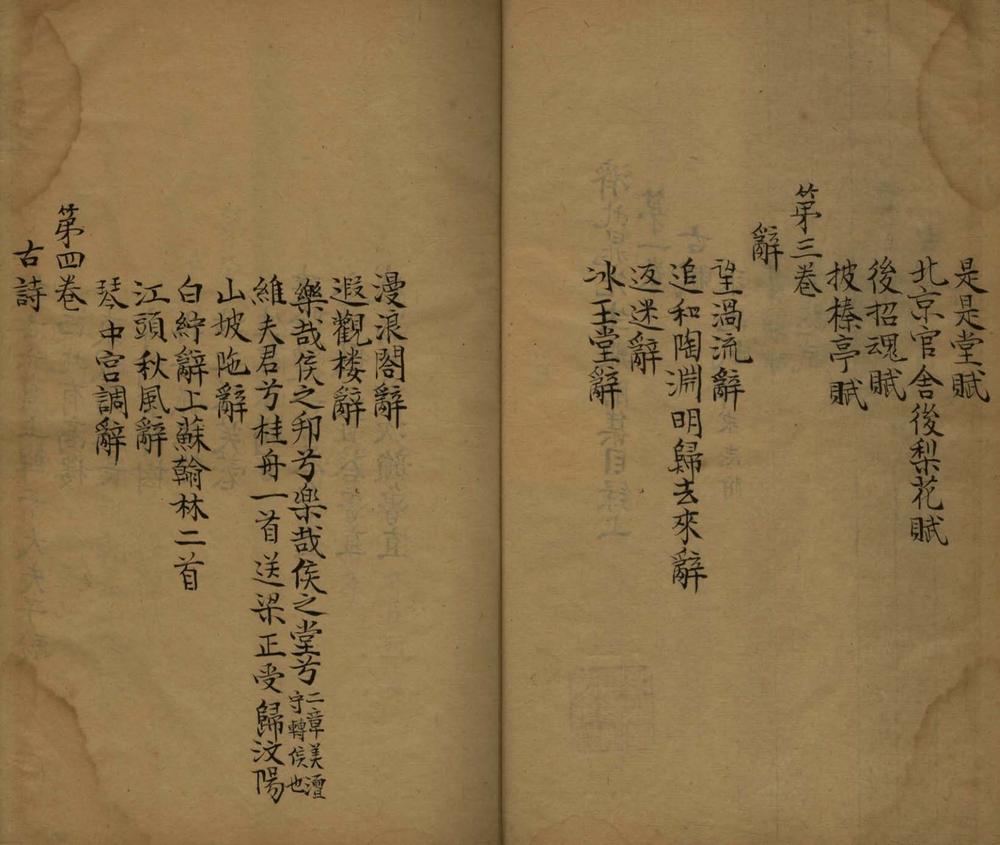 是是堂賦
北京官舍後梨花賦
後招魂賦
披榛亭賦
第三卷
辭
望渦流辭
追和陶淵明歸去來辭
返迷辭
冰玉堂辭
漫浪閣辭
遐觀楼辭
樂哉侯之邦兮楽哉侯之堂兮二章美澶守轉侯也
維夫君兮桂舟一首送梁正受歸汶陽
山坡陁辭
白紵辭上蘇翰林二首
江頭秋風辭
琴中宫調辭
第四卷
古詩